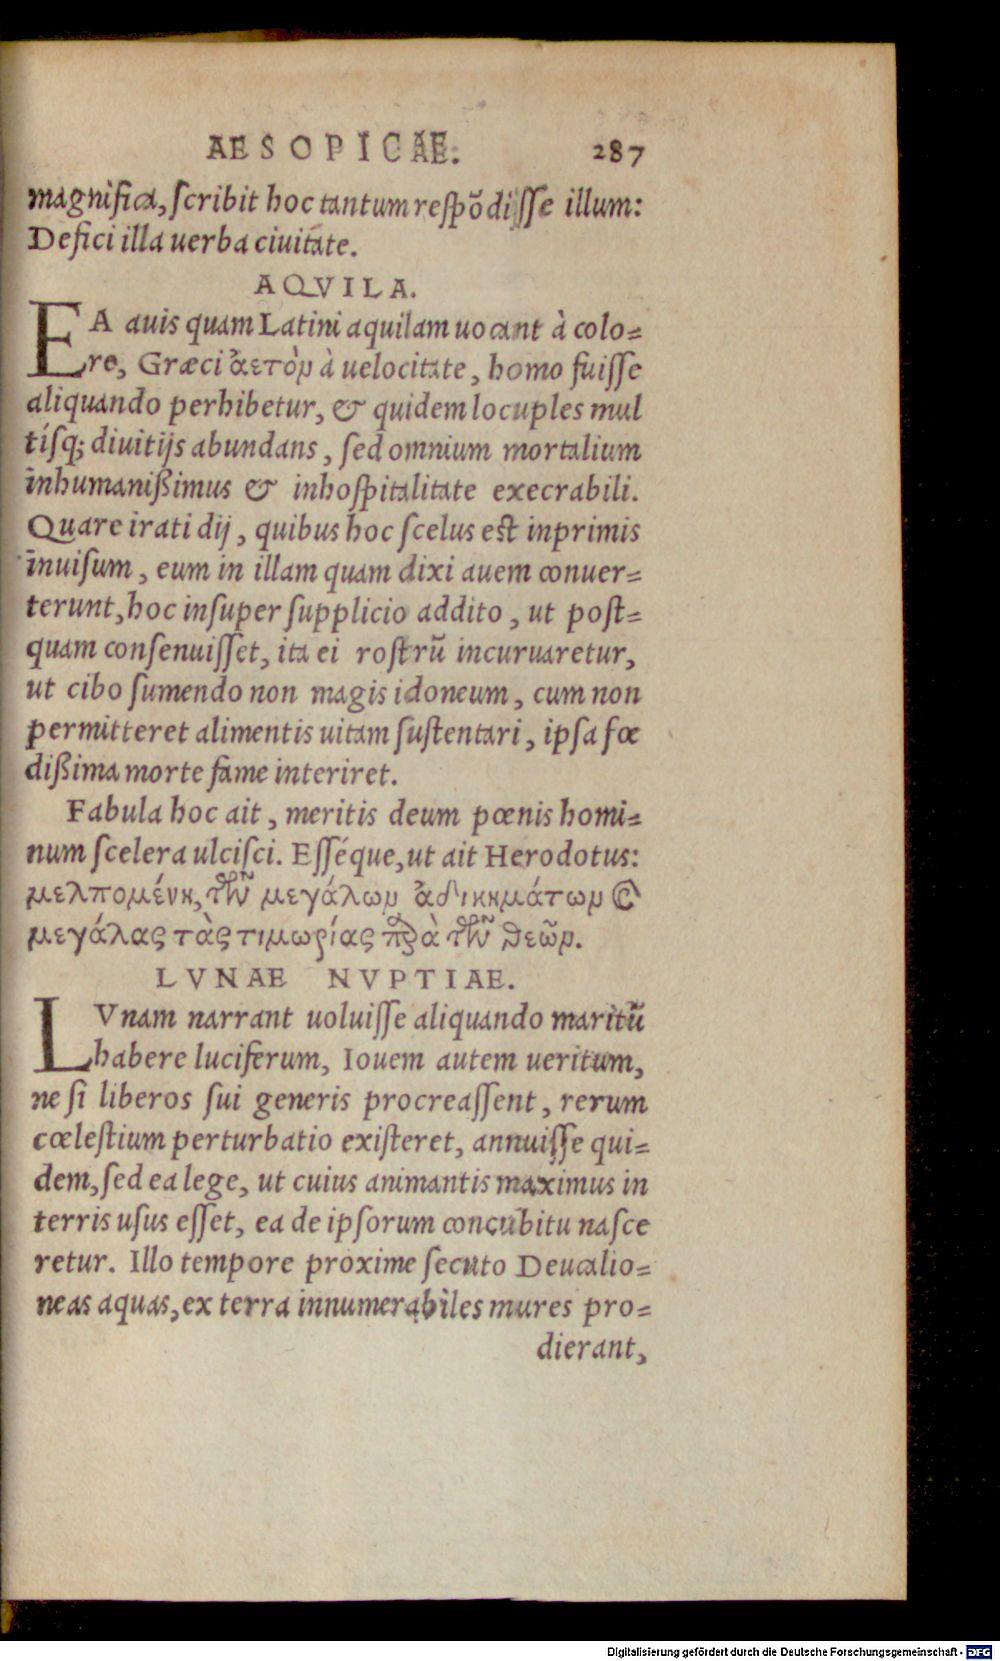 AESOPICAE. 287
magnifica, scribit hoc tantum respõdisse illum:
Defici illa uerba ciuitate.
AQVILA.
EA auis quam Latini aquilam uocant à colo=
re, Græci ἀετὸν à uelocitate, homo fuisse
aliquando perhibetur, & quidem locuples mul
tísq; diuitijs abundans, sed omnium mortalium
inhumanißimus & inhospitalitate execrabili.
Quare irati dij, quibus hoc scelus est inprimis
inuisum, eum in illam quam dixi auem conuer=
terunt, hoc insuper supplicio addito, ut post=
quam consenuisset, ita ei rostrũ incuruaretur,
ut cibo sumendo non magis idoneum, cum non
permitteret alimentis uitam sustentari, ipsa fœ
dißima morte fame interiret.
Fabula hoc ait, meritis deum pœnis homi=
num scelera ulcisci. Esséque, ut ait Herodotus:
μελπομένη, τῶν μεγάλων ἀδικημάτων ϗ
μεγάλας τὰς τιμωρίας παρὰ τῶν θεῶν.
LVNAE NVPTIAE.
LVnam narrant uoluisse aliquando maritũ
habere luciferum, Iouem autem ueritum,
ne si liberos sui generis procreassent, rerum
cœlestium perturbatio existeret, annuisse qui=
dem, sed ea lege, ut cuius animantis maximus in
terris usus esset, ea de ipsorum concubitu nasce
retur. Illo tempore proxime secuto Deucalio=
neas aquas, ex terra innumerabiles mures pro=
dierant,
Digitalisierung gefördert durch die Deutsche Forschungsgemeinschaft - DFG